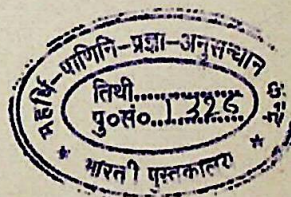 महर्षि-पाणिनि-प्रज्ञा-अनुसन्धान
तिथी..................
पु०सं० 1326
* भारती पुस्तकालय *